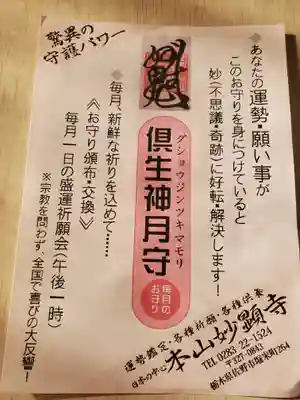 驚異の
守護パワー
あなたの運勢・願い事が
このお守りを身につけていると
妙(不思議・奇跡)に好転・解決します!
グショウジンツキマモリ
倶生神月守
毎月の
お守り
毎月、新鮮な祈りを込めて……
《お守り頒布・交換》
毎月一日の盛運祈願会(午後一時)
※宗教を問わず、全国で喜びの大反響!
運勢鑑定・各種祈願・各種供養
日本の中心 本山妙顕寺
TEL 0283-22-1524
〒327-0843
栃木県佐野市堀米町264